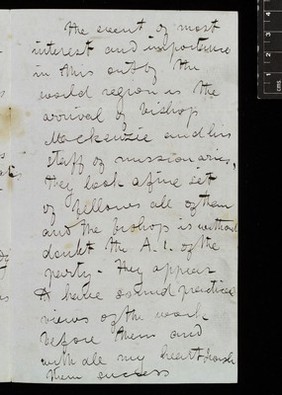 The event of most
interest and importance
in this out by the
world region is the
arrival of bishop
Mackenzie and his
staff of missionaries,
they look a fine set
of fellows all of them
and the bishop is without
doubt the A.1. of the
party - they appear
to have sound practical
views of the work
before them and
with all my heart I wish
them success